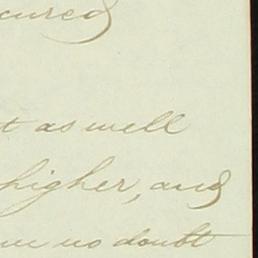 cured
t as well
higher, and
no doubt